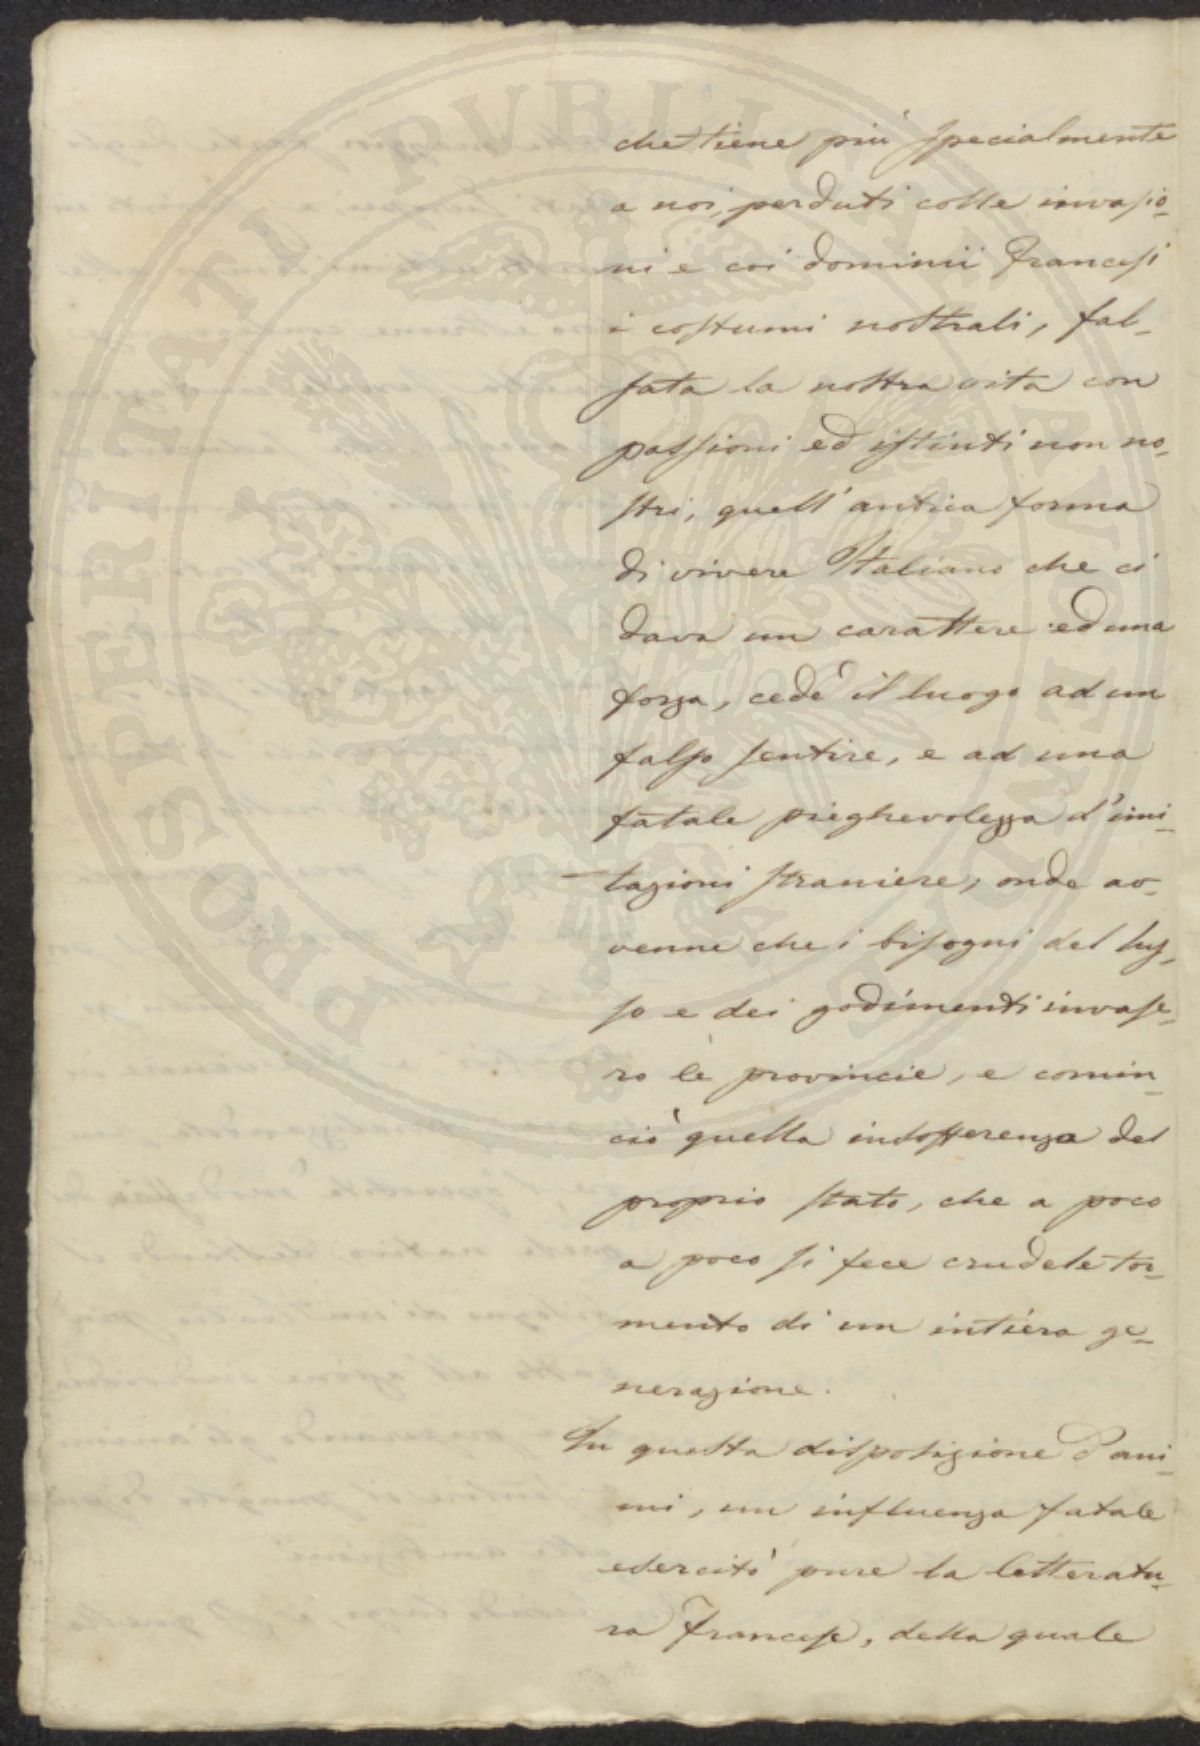 PROSPERITATI PVBLICAE AVGENDAE
che tiene più specialmente
a noi, perduti colle invasio-
ni e coi dominii Francesi
i costumi nostrali, fal-
sata la nostra vita con
passioni ed istinti non no-
stri, quell' antica forma
di vivere Italiano che ci
dava un carattere ed una
forza, cedè il luogo ad un
falso sentire, e ad una
fatale pieghevolezza d'imi-
tazioni straniere, onde av-
venne che i bisogni del lus-
so e dei godimenti invase-
ro le provincie, e comin-
ciò quella indofferenza del
proprio stato, che a poco
a poco si fece crudele tor-
mento di un intiera ge-
nerazione.
In questa disposizione d'ani-
mi, un influenza fatale
esercitò pure la letteratu-
ra Francese, della quale